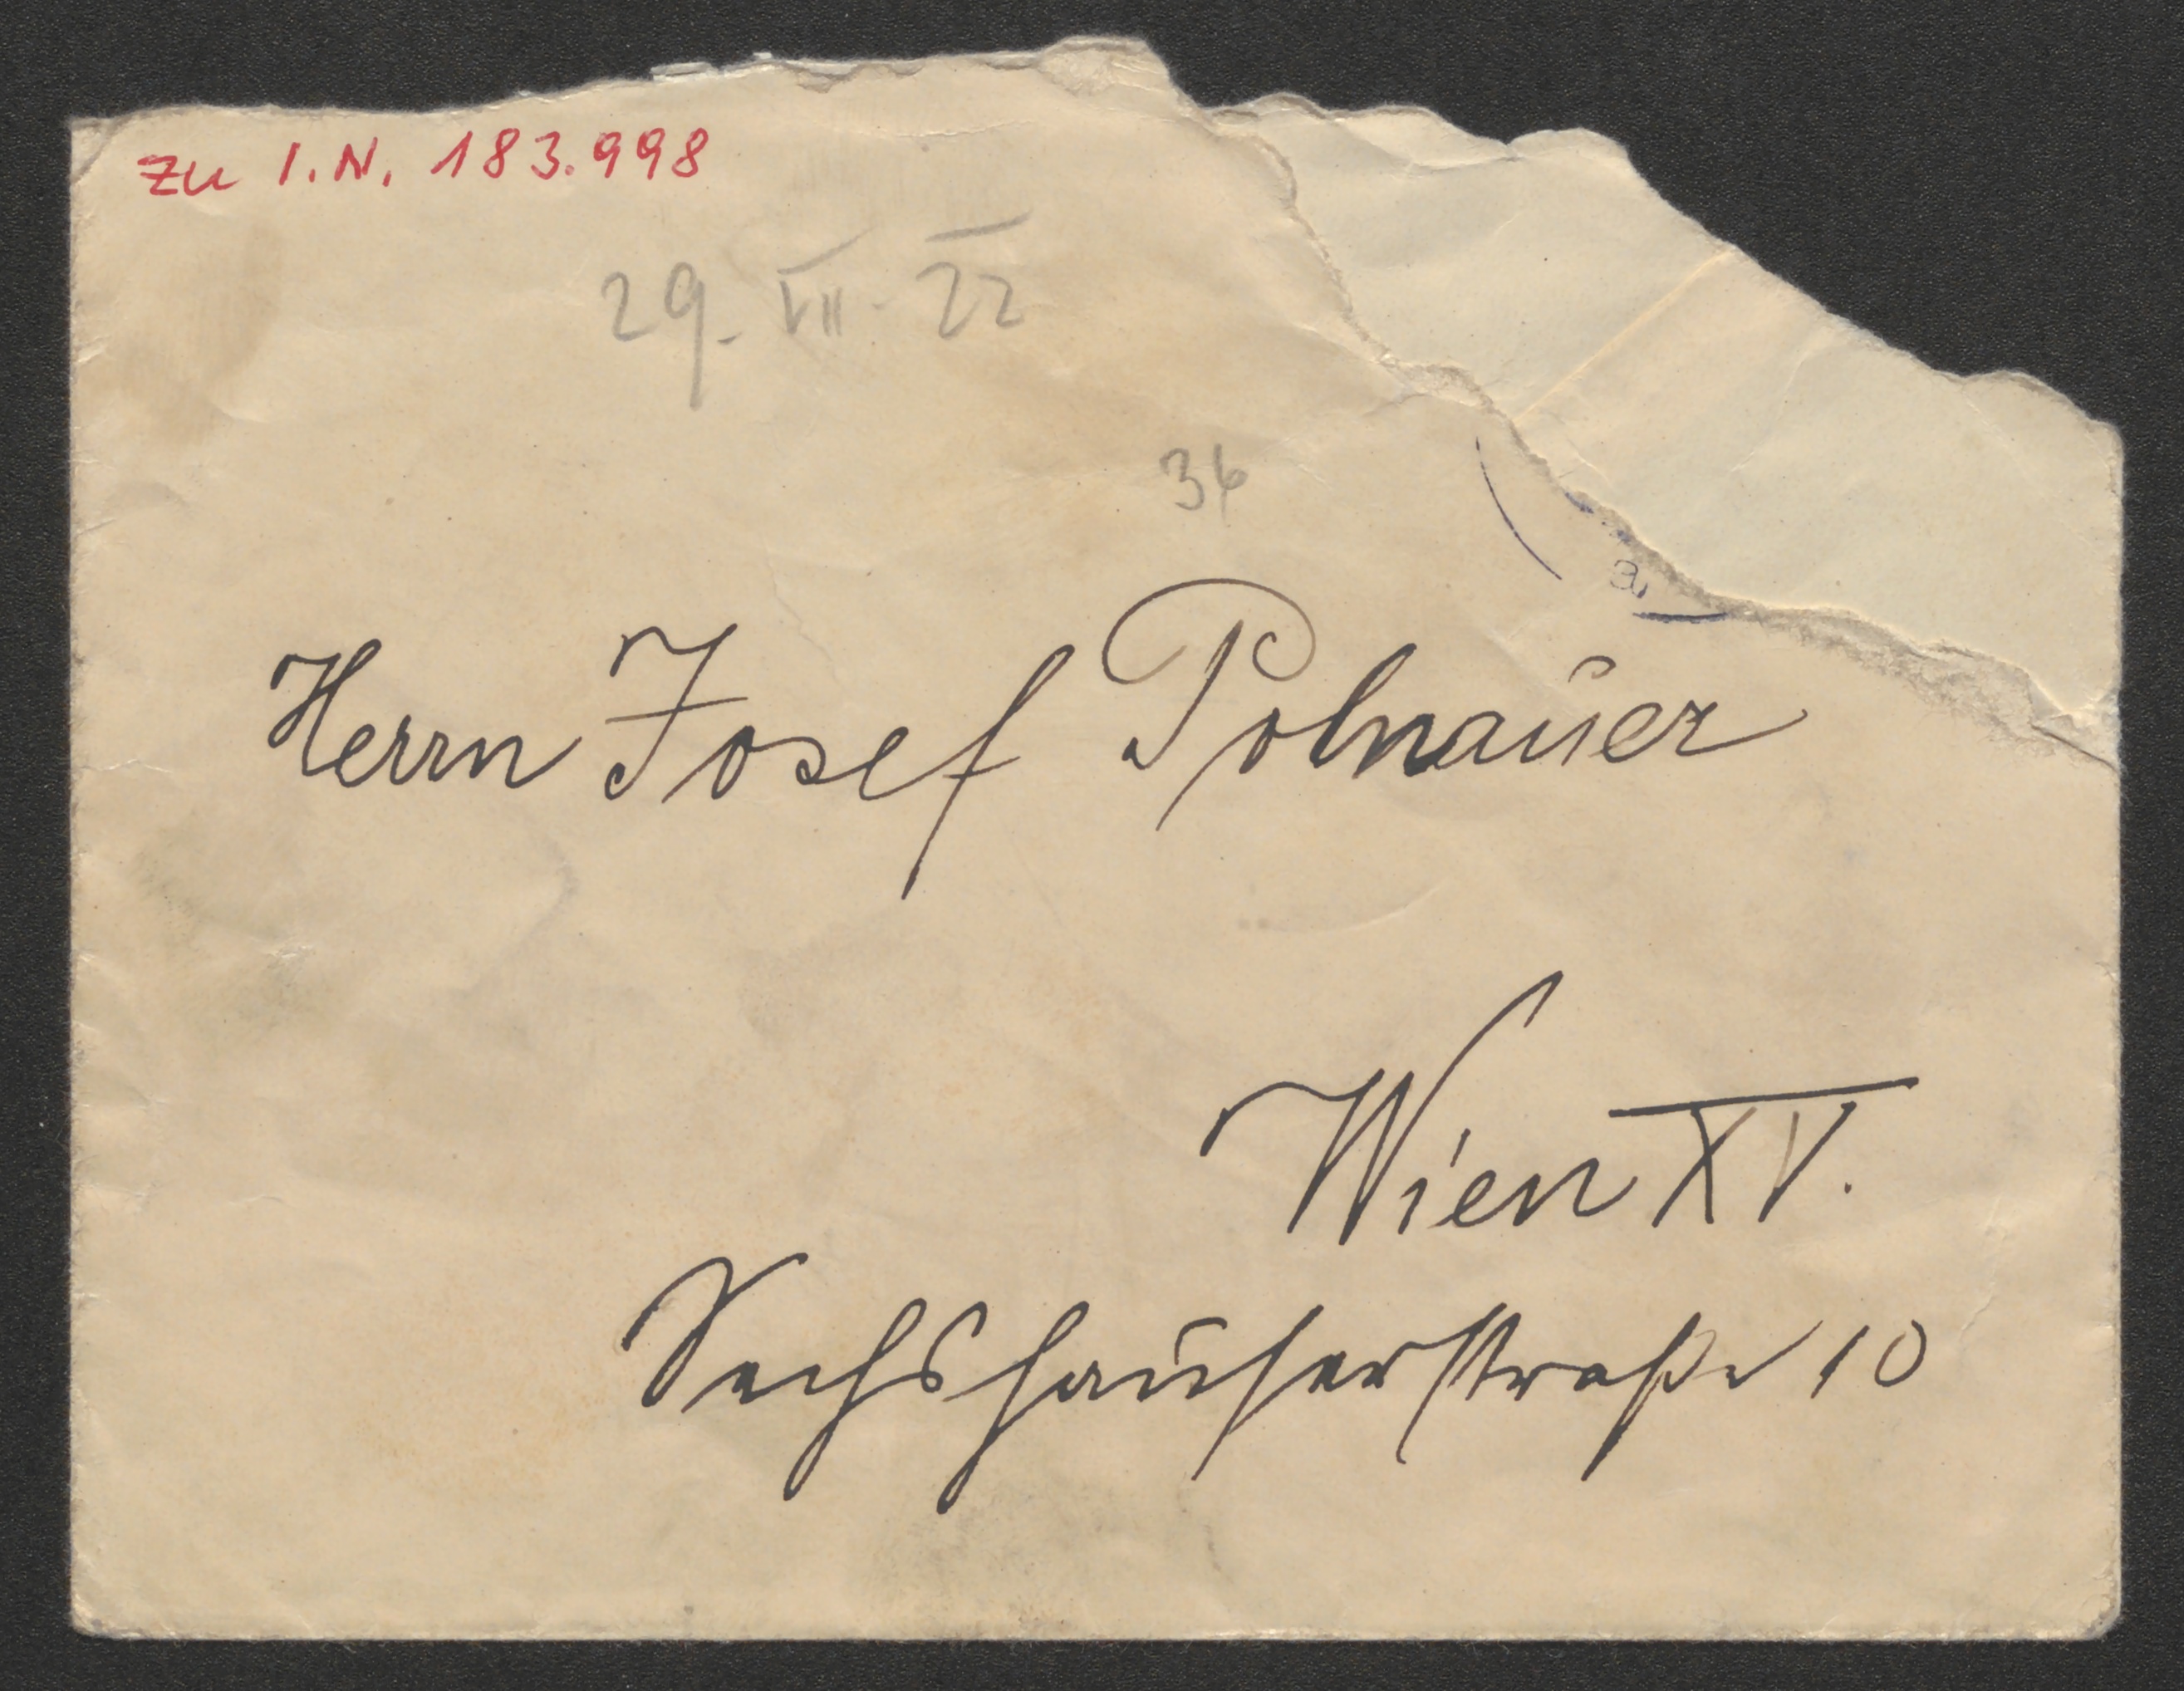 zu I.N. 183.998
29. VII. 22
36
Herrn Josef Polnauer
Wien XV.
Sechshauserstraße 10